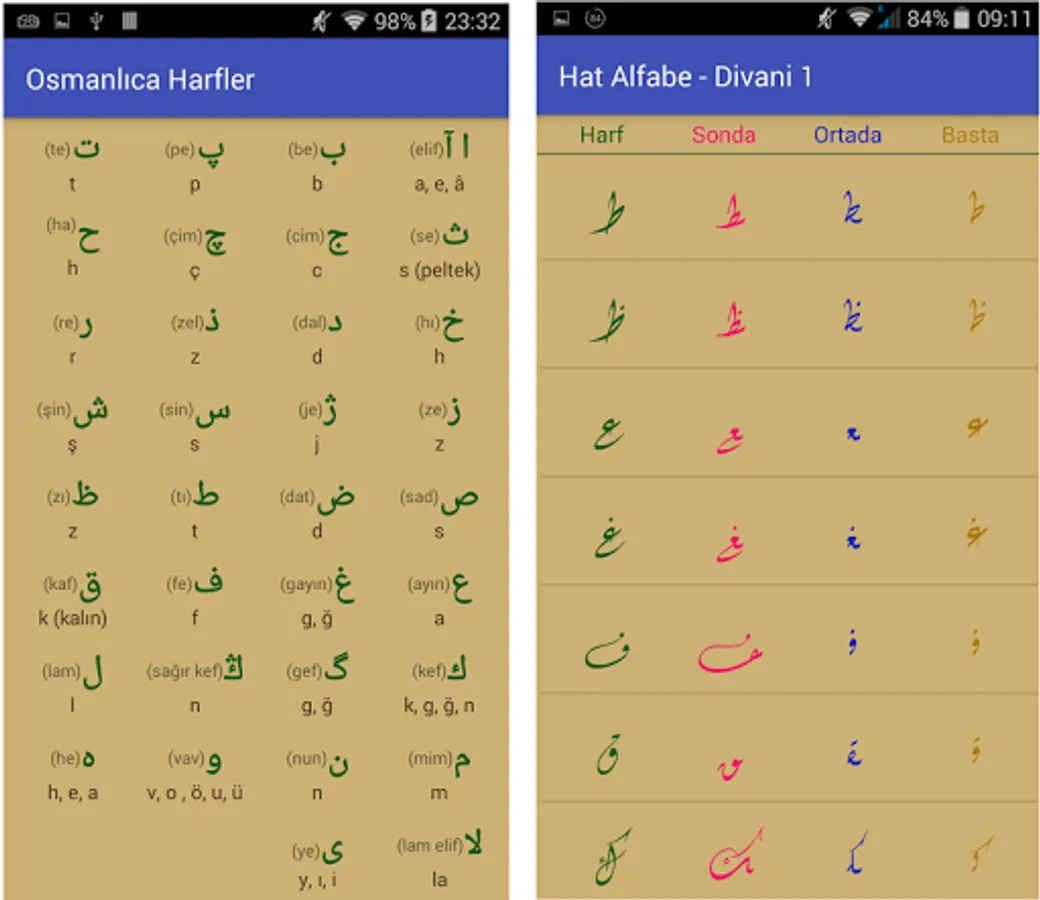 98% 23:32
Osmanlıca Harfler
(te) ت (pe) پ (be) ب (elif) ا آ
t p b a, e, â
(ha) ح (çim) چ (cim) ج (se) ث
h ç c s (peltek)
(re) ر (zel) ذ (dal) د (hı) خ
r z d h
(şin) ش (sin) س (je) ژ (ze) ز
ş s j z
(zı) ظ (tı) ط (dat) ض (sad) ص
z t d s
(kaf) ق (fe) ف (gayın) غ (ayın) ع
k (kalın) f g, ğ a
(lam) ل (sağır kef) ڭ (gef) گ (kef) ك
l n g, ğ k, g, ğ, n
(he) ه (vav) و (nun) ن (mim) م
h, e, a v, o , ö, u, ü n m
(ye) ى (lam elif) لا
y, ı, i la
84 84% 09:11
Hat Alfabe - Divani 1
Harf Sonda Ortada Basta
ط ط ط ط
ظ ظ ظ ظ
ع ع ع ع
غ غ غ غ
ف ف ف ف
ق ق ق ق
ك ك ك ك